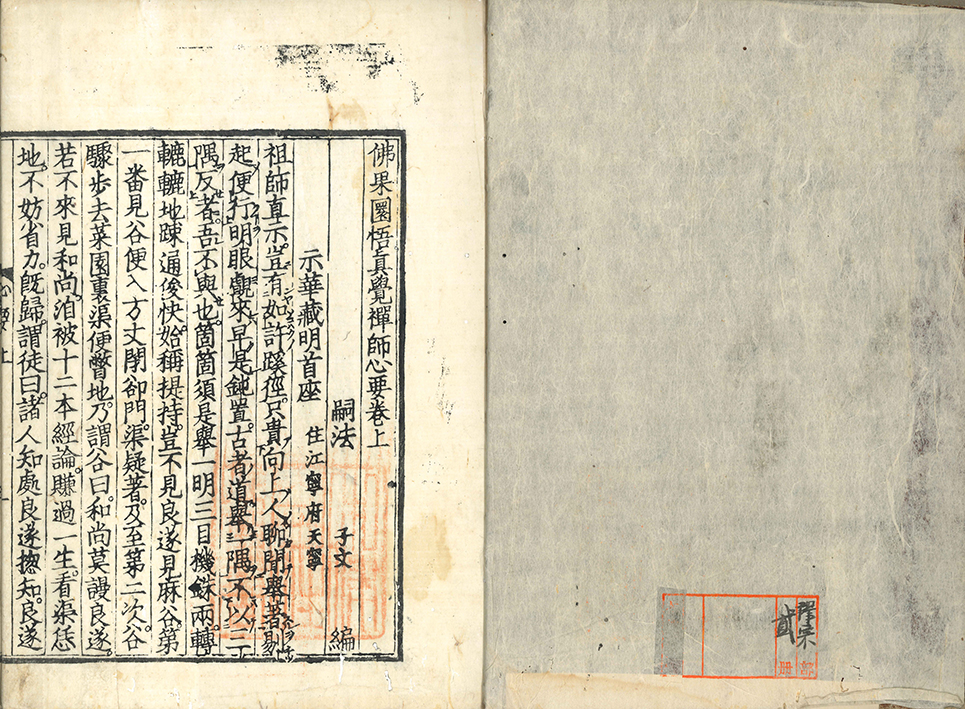 佛果圜悟真覺禪師心要卷上
嗣法 子文 編
示華藏明首座 住江寧府天寧
祖師直示。豈有如許蹊徑。只貴向上人聊聞舉著剔
起便行。明眼覷來早是鈍置。古者道舉一隅不以三
隅反者。吾不與也。箇箇須是舉一明三目機銖兩。轉
轆轆地踈通俊快始稱提持。豈不見良遂見麻谷第
一番見谷便入方丈閉卻門。渠疑著。及至第二次谷
驟步去菜園裏渠便瞥地。乃謂谷曰。和尚莫謾良遂。
若不來見和尚。洎被十二本經論賺過一生。看渠恁
地。不妨省力。既歸。謂徒曰。諸人知處良遂揔知。良遂
禪宗 部
貳 冊